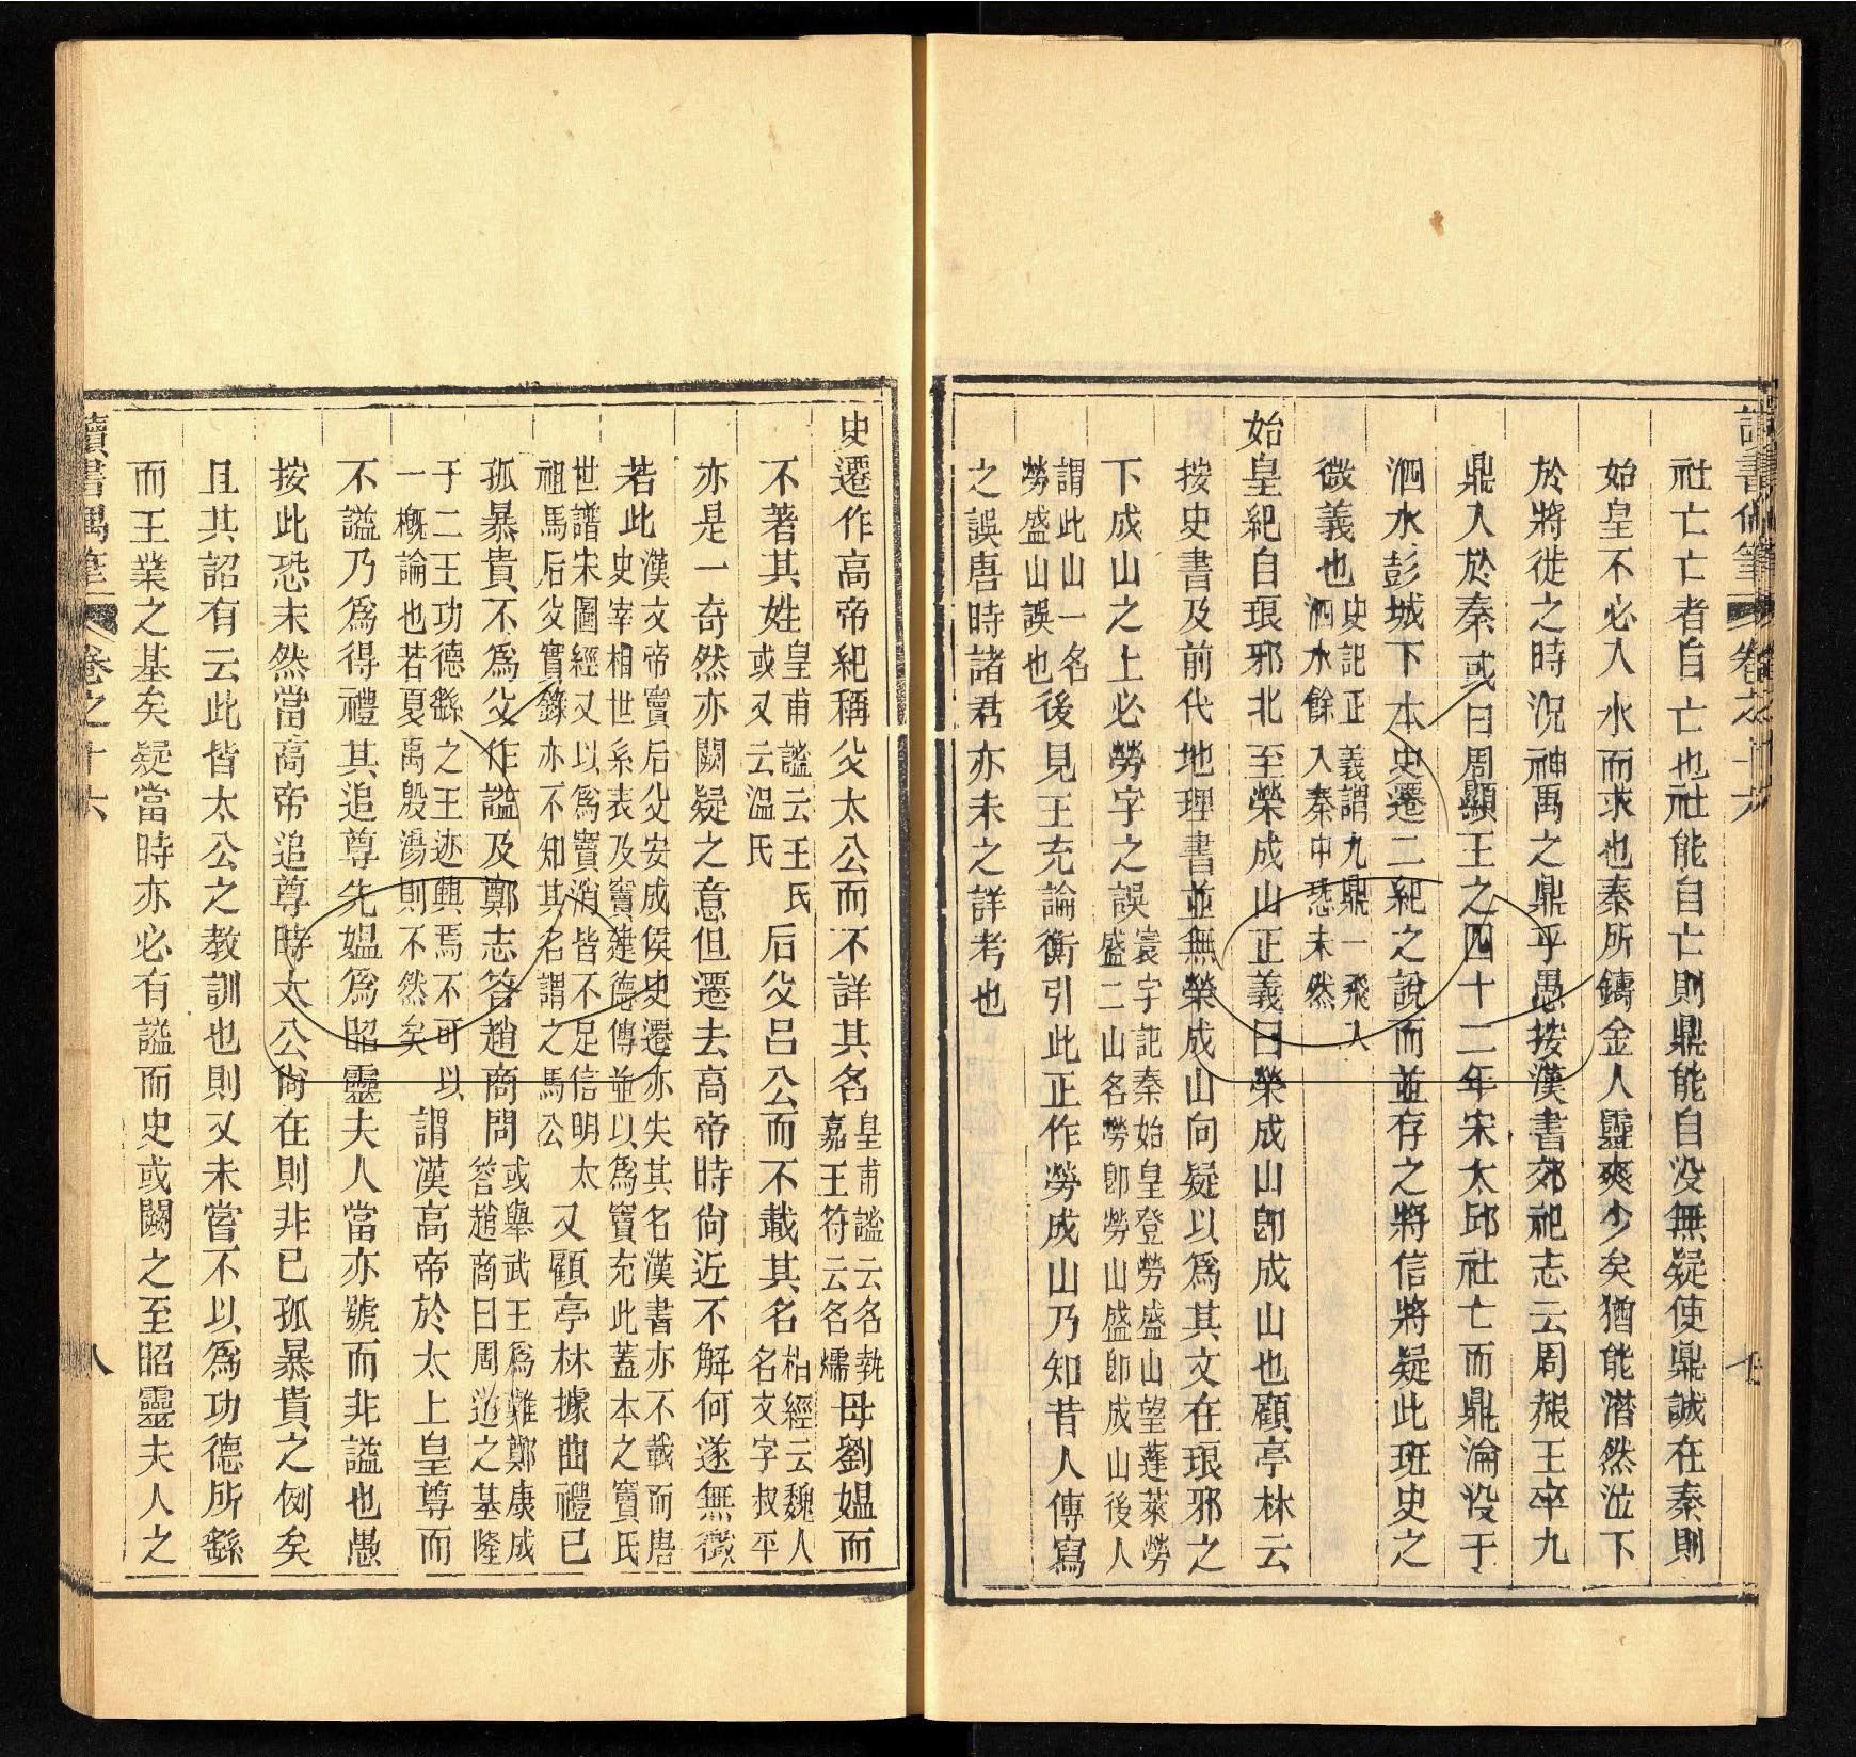 讀書偶筆 卷之十六 七
社亡亡者自亡也社能自亡則鼎能自没無疑使鼎誠在秦則
始皇不必入水而求也秦所鑄金人靈爽少矣猶能潸然泣下
於將徙之時況神禹之鼎乎愚按漢書郊祀志云周赧王卒九
鼎入於秦或曰周顯王之四十二年宋太邱社亡而鼎淪没于
泗水彭城下本史遷二紀之說而並存之將信將疑此班史之
微義也史記正義謂九鼎一飛入泗水餘入秦中恐未然
始皇紀自琅邪北至榮成山正義曰榮成山卽成山也顧亭林云
按史書及前代地理書並無榮成山向疑以爲其文在琅邪之
下成山之上必勞字之誤寰宇記秦始皇登勞盛山望蓬萊勞盛二山名勞卽勞山盛卽成山後人
謂此山一名勞盛山誤也後見王充論衡引此正作勞成山乃知昔人傳寫
之誤唐時諸君亦未之詳考也
史遷作高帝紀稱父太公而不詳其名皇甫謐云名執嘉王符云名煓母劉媼而
不著其姓皇甫謐云王氏或又云溫氏后父呂公而不載其名相經云魏人名文字叔平
亦是一奇然亦闕疑之意但遷去高帝時尙近不解何遂無徵
若此漢文帝竇后父安成侯史遷亦失其名漢書亦不載而唐史宰相世系表及竇建德傳並以爲竇充此蓋本之竇氏
世譜宋圖經又以爲竇消皆不足信明太祖馬后父實錄亦不知其名謂之馬公又顧亭林據曲禮已
孤暴貴不爲父作謚及鄭志答趙商問或舉武王爲難鄭康成答趙商曰周道之基隆
于二王功德繇之王迹興焉不可以一槪論也若夏禹殷湯則不然矣謂漢高帝於太上皇尊而
不謚乃爲得禮其追尊先媼爲昭靈夫人當亦號而非謚也愚
按此恐未然當高帝追尊時太公尙在則非已孤暴貴之例矣
且其詔有云此皆太公之教訓也則又未嘗不以爲功德所繇
而王業之基矣疑當時亦必有謚而史或闕之至昭靈夫人之
讀書偶筆 卷之十六 八